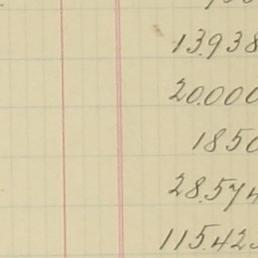 13.938
20.000
1850
28.574
115.423